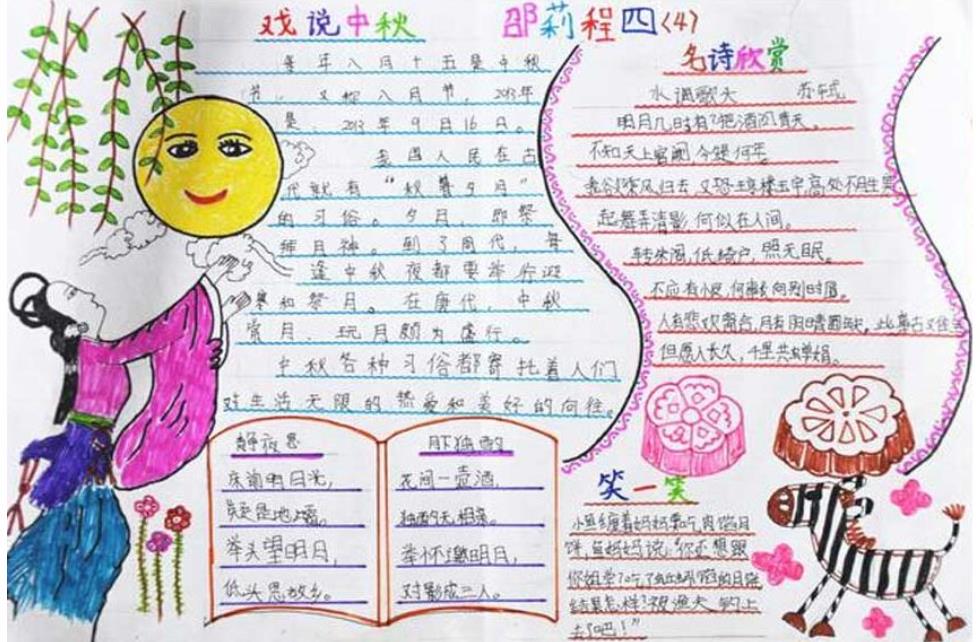 戏说中秋 邵莉程四(4)
每年八月十五是中秋
节，又称八月节，2013年
是，2013年9月16日。
我国人民在古
代就有“秋暮夕月”
的习俗。夕月，即祭
拜月神。到了周代，每
逢中秋夜都要举行迎
寒和祭月。在唐代，中秋
赏月、玩月颇为盛行。
中秋各种习俗都寄托着人们
对生活无限的热爱和美好的向往。
静夜思
床前明月光，
疑是地上霜。
举头望明月，
低头思故乡。
月下独酌
花间一壶酒，
独酌无相亲。
举杯邀明月，
对影成三人。
名诗欣赏
水调歌头 苏轼
明月几时有？把酒问青天。
不知天上宫阙，今夕是何年
我欲乘风归去，又恐琼楼玉宇，高处不胜寒
起舞弄清影，何似在人间。
转朱阁，低绮户，照无眠。
不应有恨，何事长向别时圆。
人有悲欢离合，月有阴晴圆缺，此事古难全
但愿人长久，千里共婵娟。
笑一笑
小鱼缠着妈妈要吃肉馅月
饼，鱼妈妈说：“你还想跟
你姐学？吃了蚯蚓馅的月饼
结果怎样？被渔夫钓上
去了吧！”